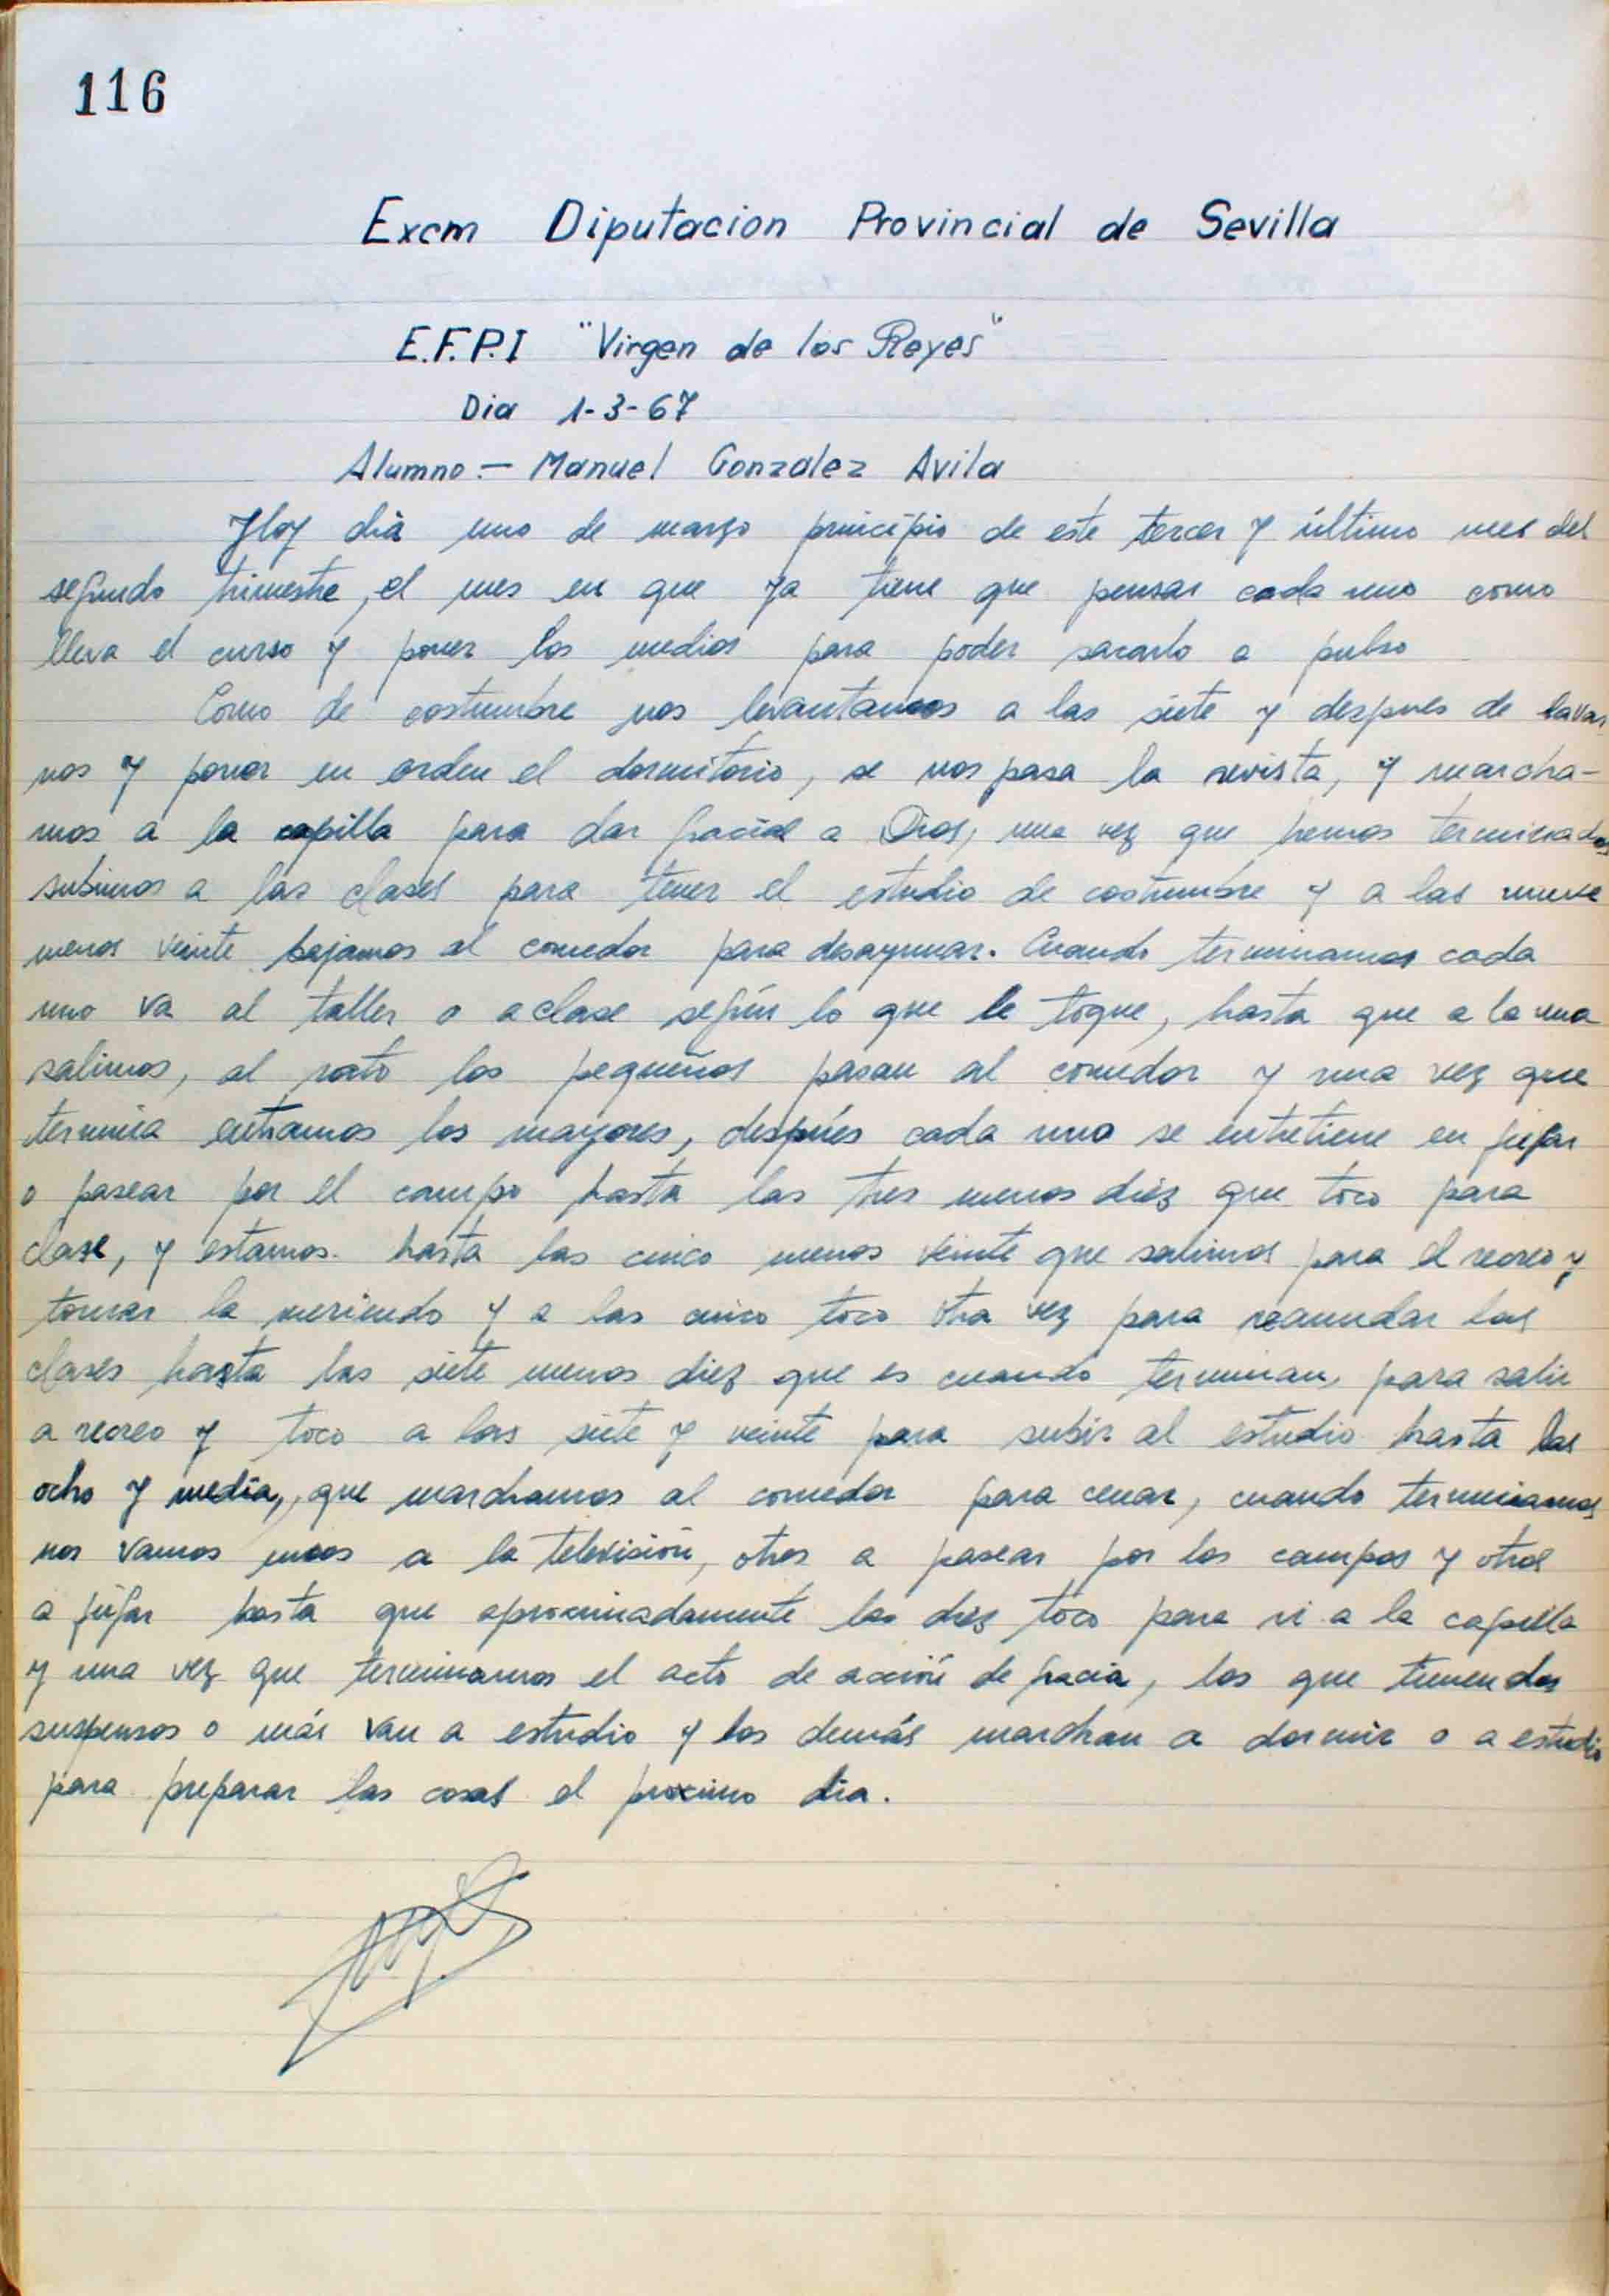 116
Excm Diputacion Provincial de Sevilla
E.F.P.I "Virgen de los Reyes"
Dia 1-3-67
Alumno.- Manuel Gonzalez Avila
Hoy dia uno de marzo principio de este tercer y último mes del
segundo trimestre, el mes en que ya tiene que pensar cada uno como
lleva el curso y poner los medios para poder sacarlo a pulso
Como de costumbre nos levantamos a las siete y despues de lavar
nos y poner en orden el dormitorio, se nos pasa la revista, y marcha-
mos a la capilla para dar gracias a Dios, una vez que hemos terminados
subimos a las clases para tener el estudio de costumbre y a las nueve
menos veinte bajamos al comedor para desayunar. Cuando terminamos cada
uno va al taller o a clase según lo que le toque, hasta que a la una
salimos, al rato los pequeños pasan al comedor y una vez que
termina entramos los mayores, después cada uno se entretiene en jugar
o pasear por el campo hasta las tres menos diez que toco para
clase, y estamos hasta las cinco menos veinte que salimos para el recreo y
tomar la meriendo y a las cinco toco otra vez para reanudar las
clases hasta las siete menos diez que es cuando terminan, para salir
a recreo y toco a las siete y veinte para subir al estudio hasta las
ocho y media, que marchamos al comedor para cenar, cuando terminamos
nos vamos unos a la televisión, otros a pasear por los campos y otros
a jugar hasta que aproximadamente las diez toco para ir a la capilla
y una vez que terminamos el acto de acción de gracia, los que tienen dos
suspensos o más van a estudio y los demás marchan a dormir o a estudio
para preparar las cosas el proximo dia.